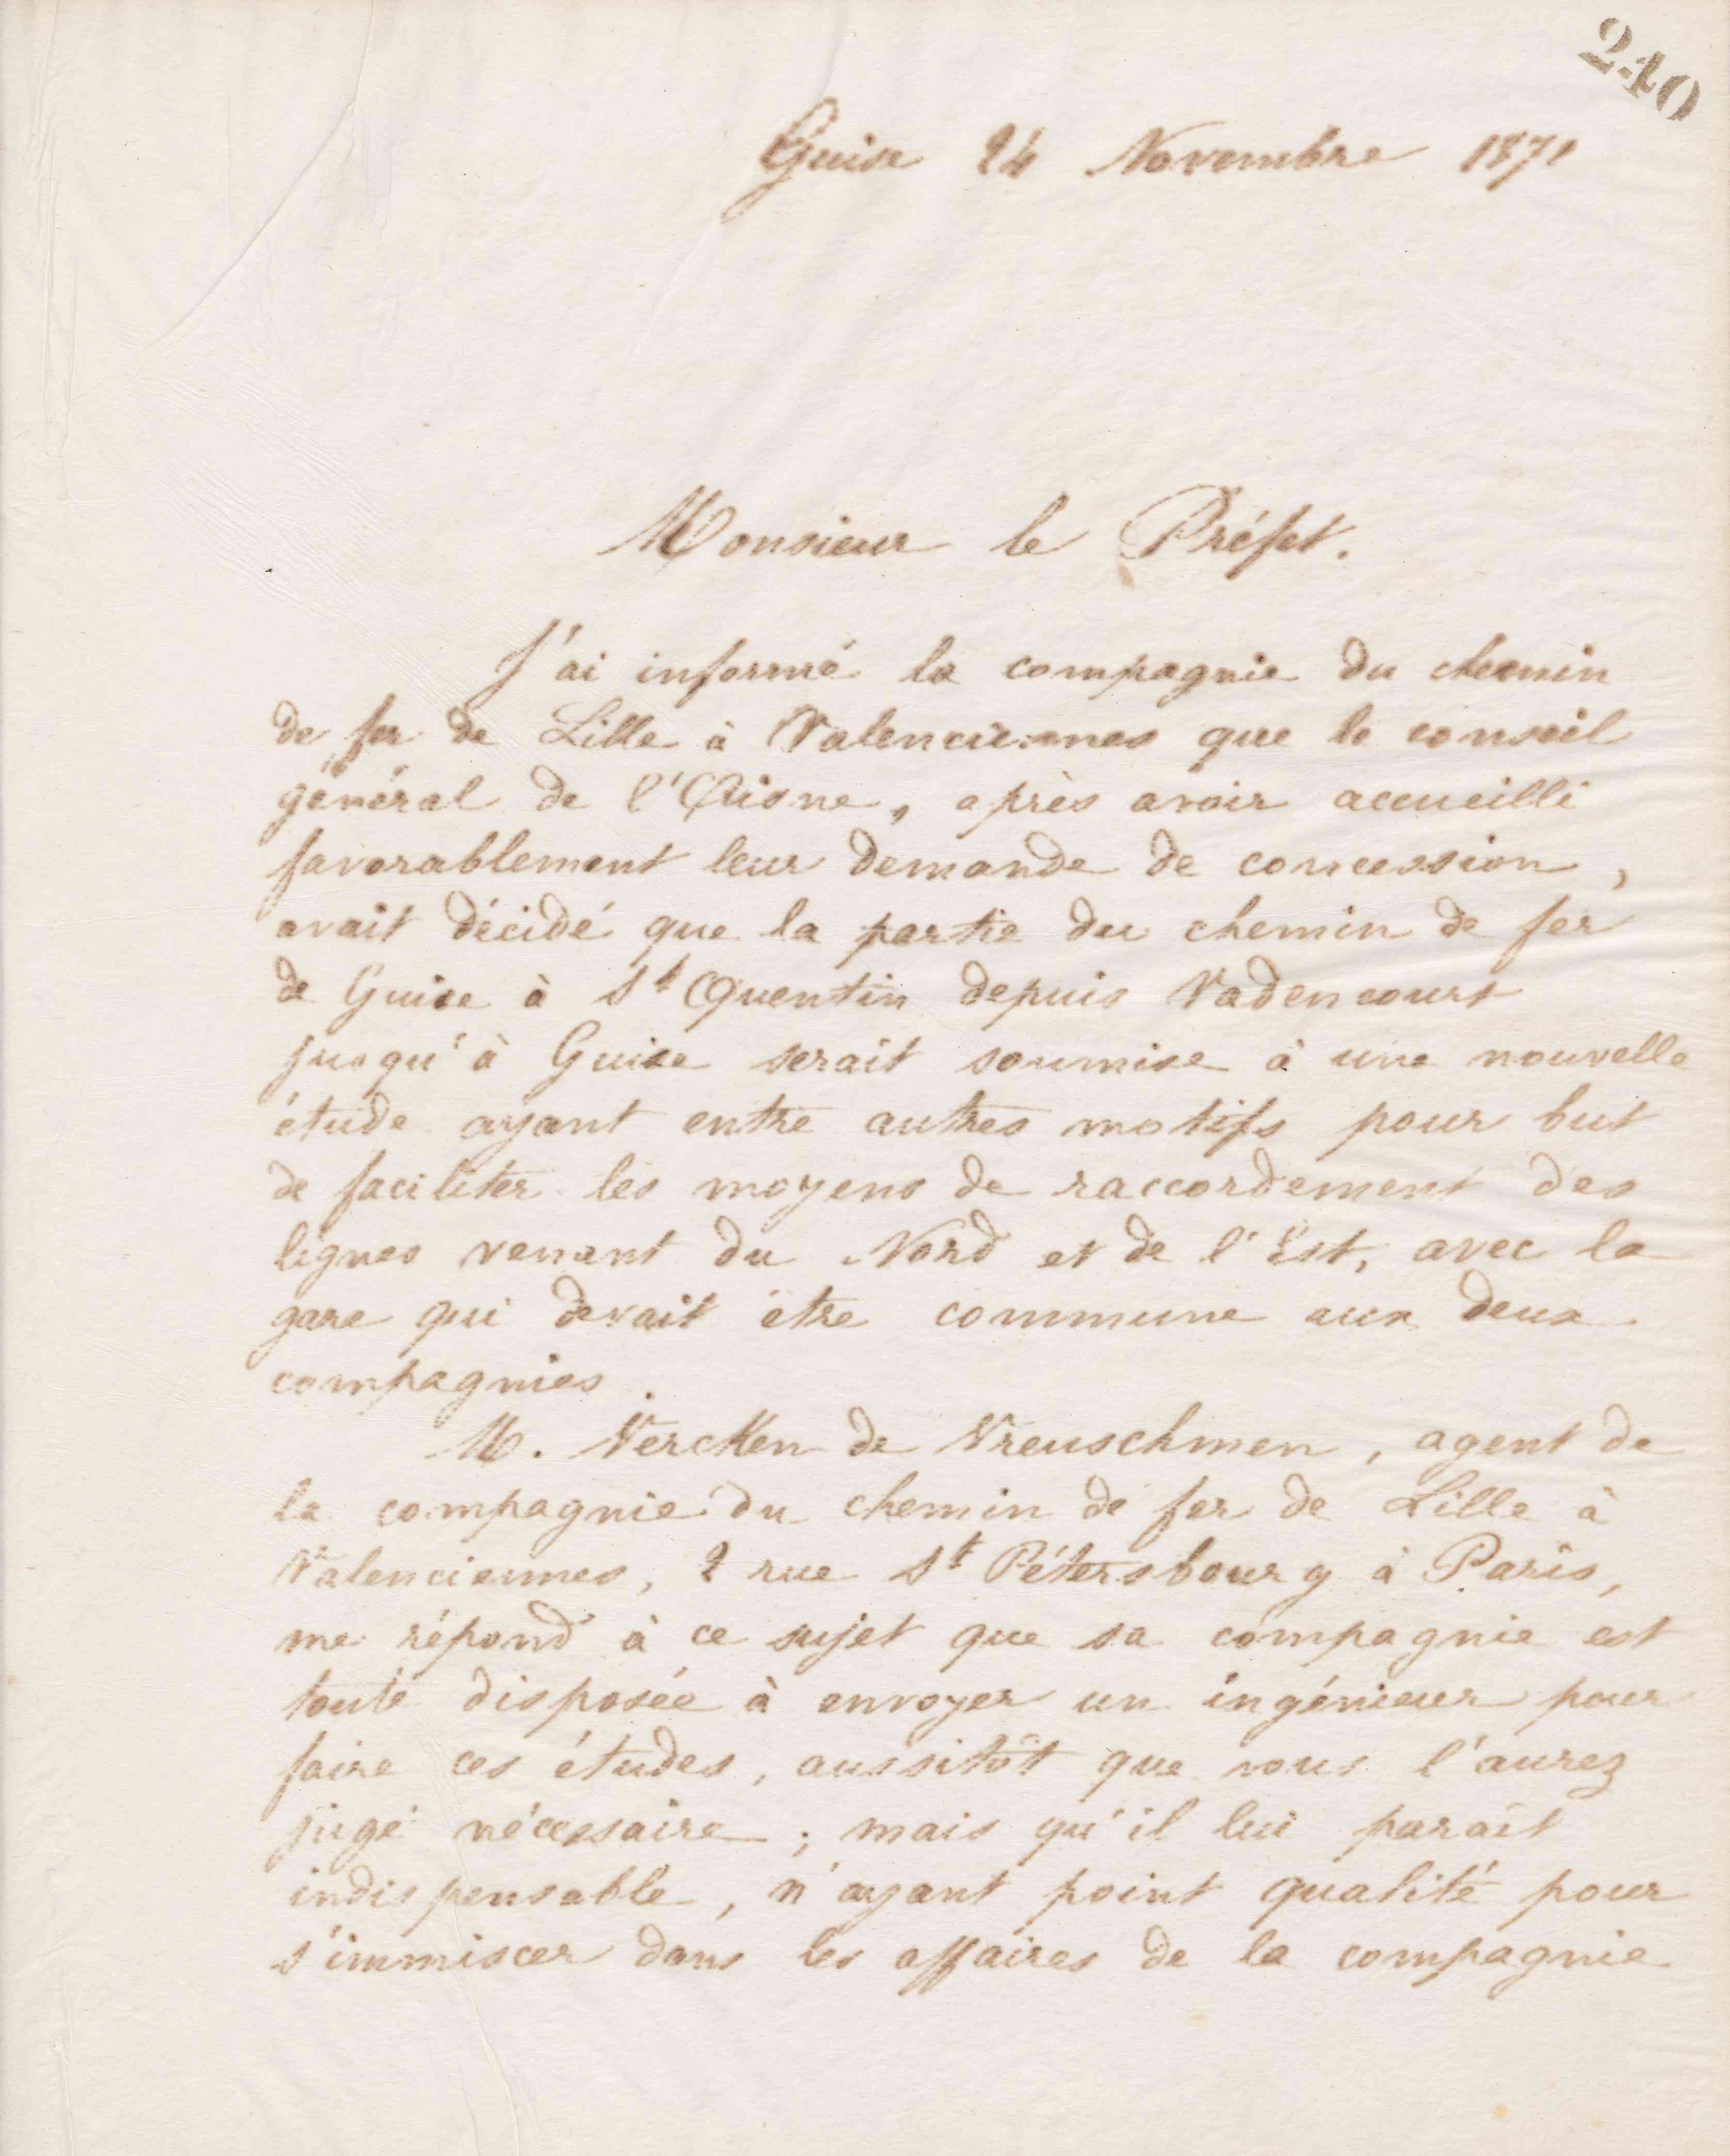 240
Guise 24 Novembre 1871
Monsieur le Préfet.
J'ai informé la compagnie du chemin
de fer de Lille à Valenciennes que le conseil
général de l'Aisne, après avoir accueilli
favorablement leur demande de concession,
avait décidé que la partie du chemin de fer
de Guise à St Quentin depuis Vadencourt
jusqu'à Guise serait soumise à une nouvelle
étude ayant entre autres motifs pour but
de faciliter les moyens de raccordement des
lignes venant du Nord et de l'Est, avec la
gare qui devait être commune aux deux
compagnies.
M. Vercken de Vreuschmen, agent de
la compagnie du chemin de fer de Lille à
Valenciennes, 2 rue St Pétersbourg à Paris,
me répond à ce sujet que sa compagnie est
toute disposée à envoyer un ingénieur pour
faire ces études, aussitôt que vous l'aurez
jugé nécessaire ; mais qu'il lui paraît
indispensable, n'ayant point qualité pour
s'immiscer dans les affaires de la compagnie